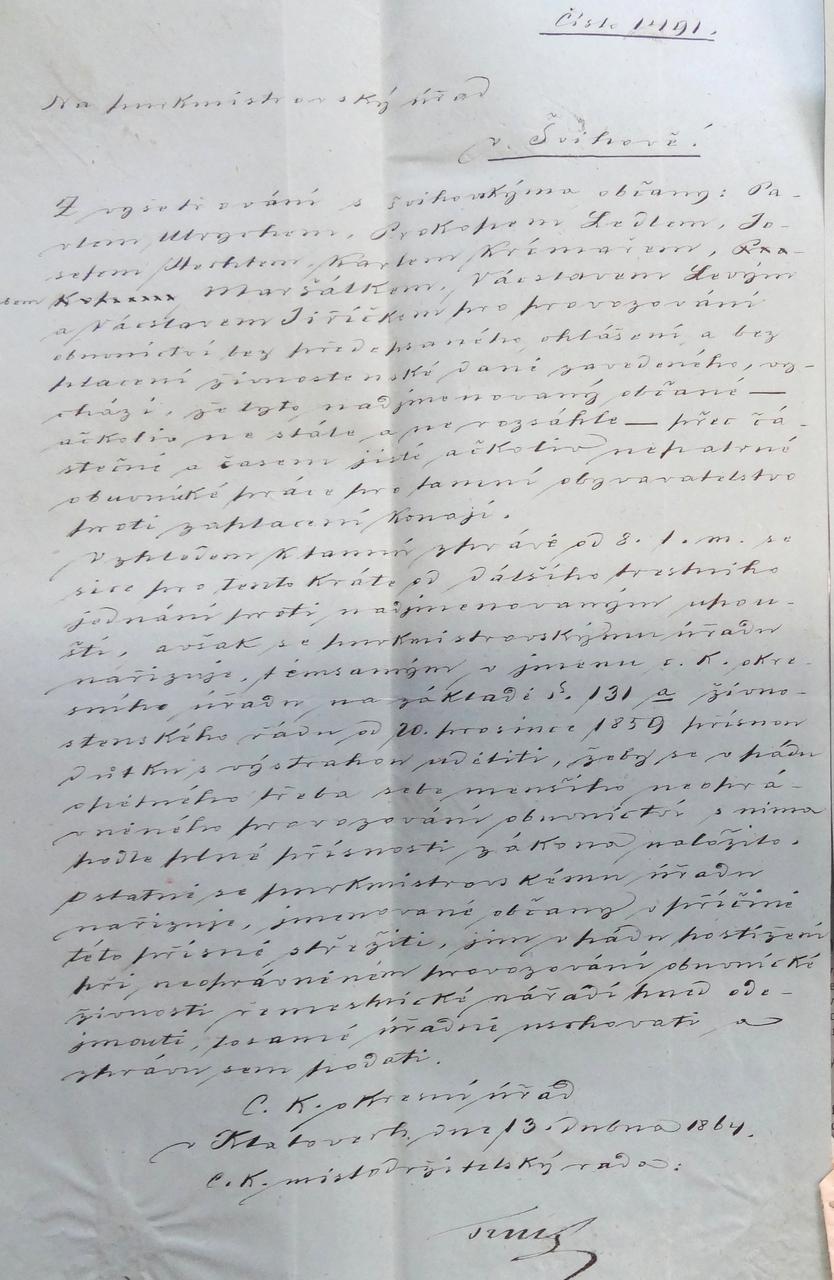 Číslo 1491.
Na purkmistrovský úřad
v Švihově!
Z vyšetřování s švihovskýma občany: Pa-
vlem Ulrychem, Prokopem Ledlem, Jo-
sefem Karlem Krčmářem,
Maršálkem, Václavem Levým
a Václavem Jiříčkem pro provozování
obuvnictví bez předepsaného ohlášení a bez
placení živnostenské daně zavedeného, vy-
chází, že tyto nadjmenovaný občané —
ačkoliv ne stále a ne rozsáhle — přec čá-
stečně a časem jisté ačkoliv nepatrné
obuvnické práce pro tamní obyvatelstvo
proti zaplacení konají.
Vzhledem k tamní zprávě od 8. t. m. se
sice pro tento kráte od dalšího trestního
jednání proti nadjmenovaným upou-
ští, avšak se purkmistrovskýmu úřadu
nařizuje, témsamým v jmenu c. k. okre-
sního úřadu na základě §. 131 a živno-
stenského řádu od 20. prosince 1859 přísnou
důtku s výstrahou uděliti, žeby se v pádu
opětného třeba sebe menšího neoprá-
vněného provozování obuvnictví s nima
podle plné přísnosti zákona naložilo.
Ostatně se purkmistrovskému úřadu
nařizuje, jmenované občany v příčině
této přísně střežiti, jim v pádu postižení
při neoprávněném provozování obuvnické
živnosti řemeslnické nářadí hned ode-
jmouti, tosamé úřadně uschovati, a
zprávu sem podati.
C. K. okresní úřad
v Klatovech, dne 13. dubna 1864.
C. K. místodržitelský rada: